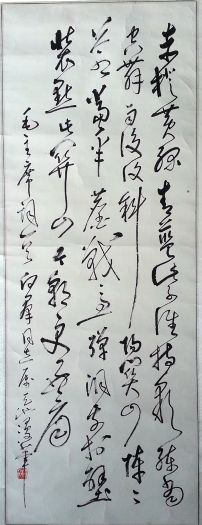 赤橙黄绿青蓝紫谁持彩练当
空舞雨后复斜阳关山阵々
苍当年鏖战急弹洞前村壁
装点此关山今朝更好看
毛主席词一首 同志属